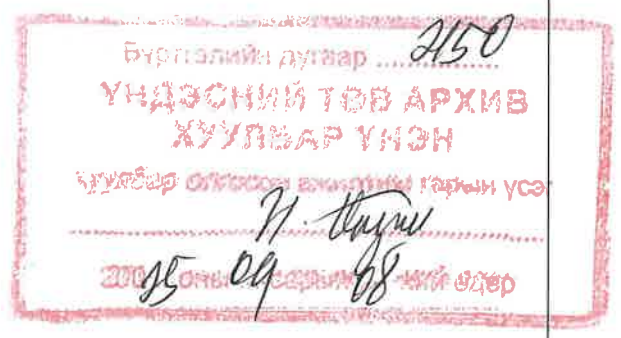 Бүртгэлийн дугаар ........ 2150
ҮНДЭСНИЙ ТӨВ АРХИВ
ХУУЛБАР ҮНЭН
Хуулбар олгосон ажилтны гарын үсэг
25 оны 09 сарын 08 -ний өдөр